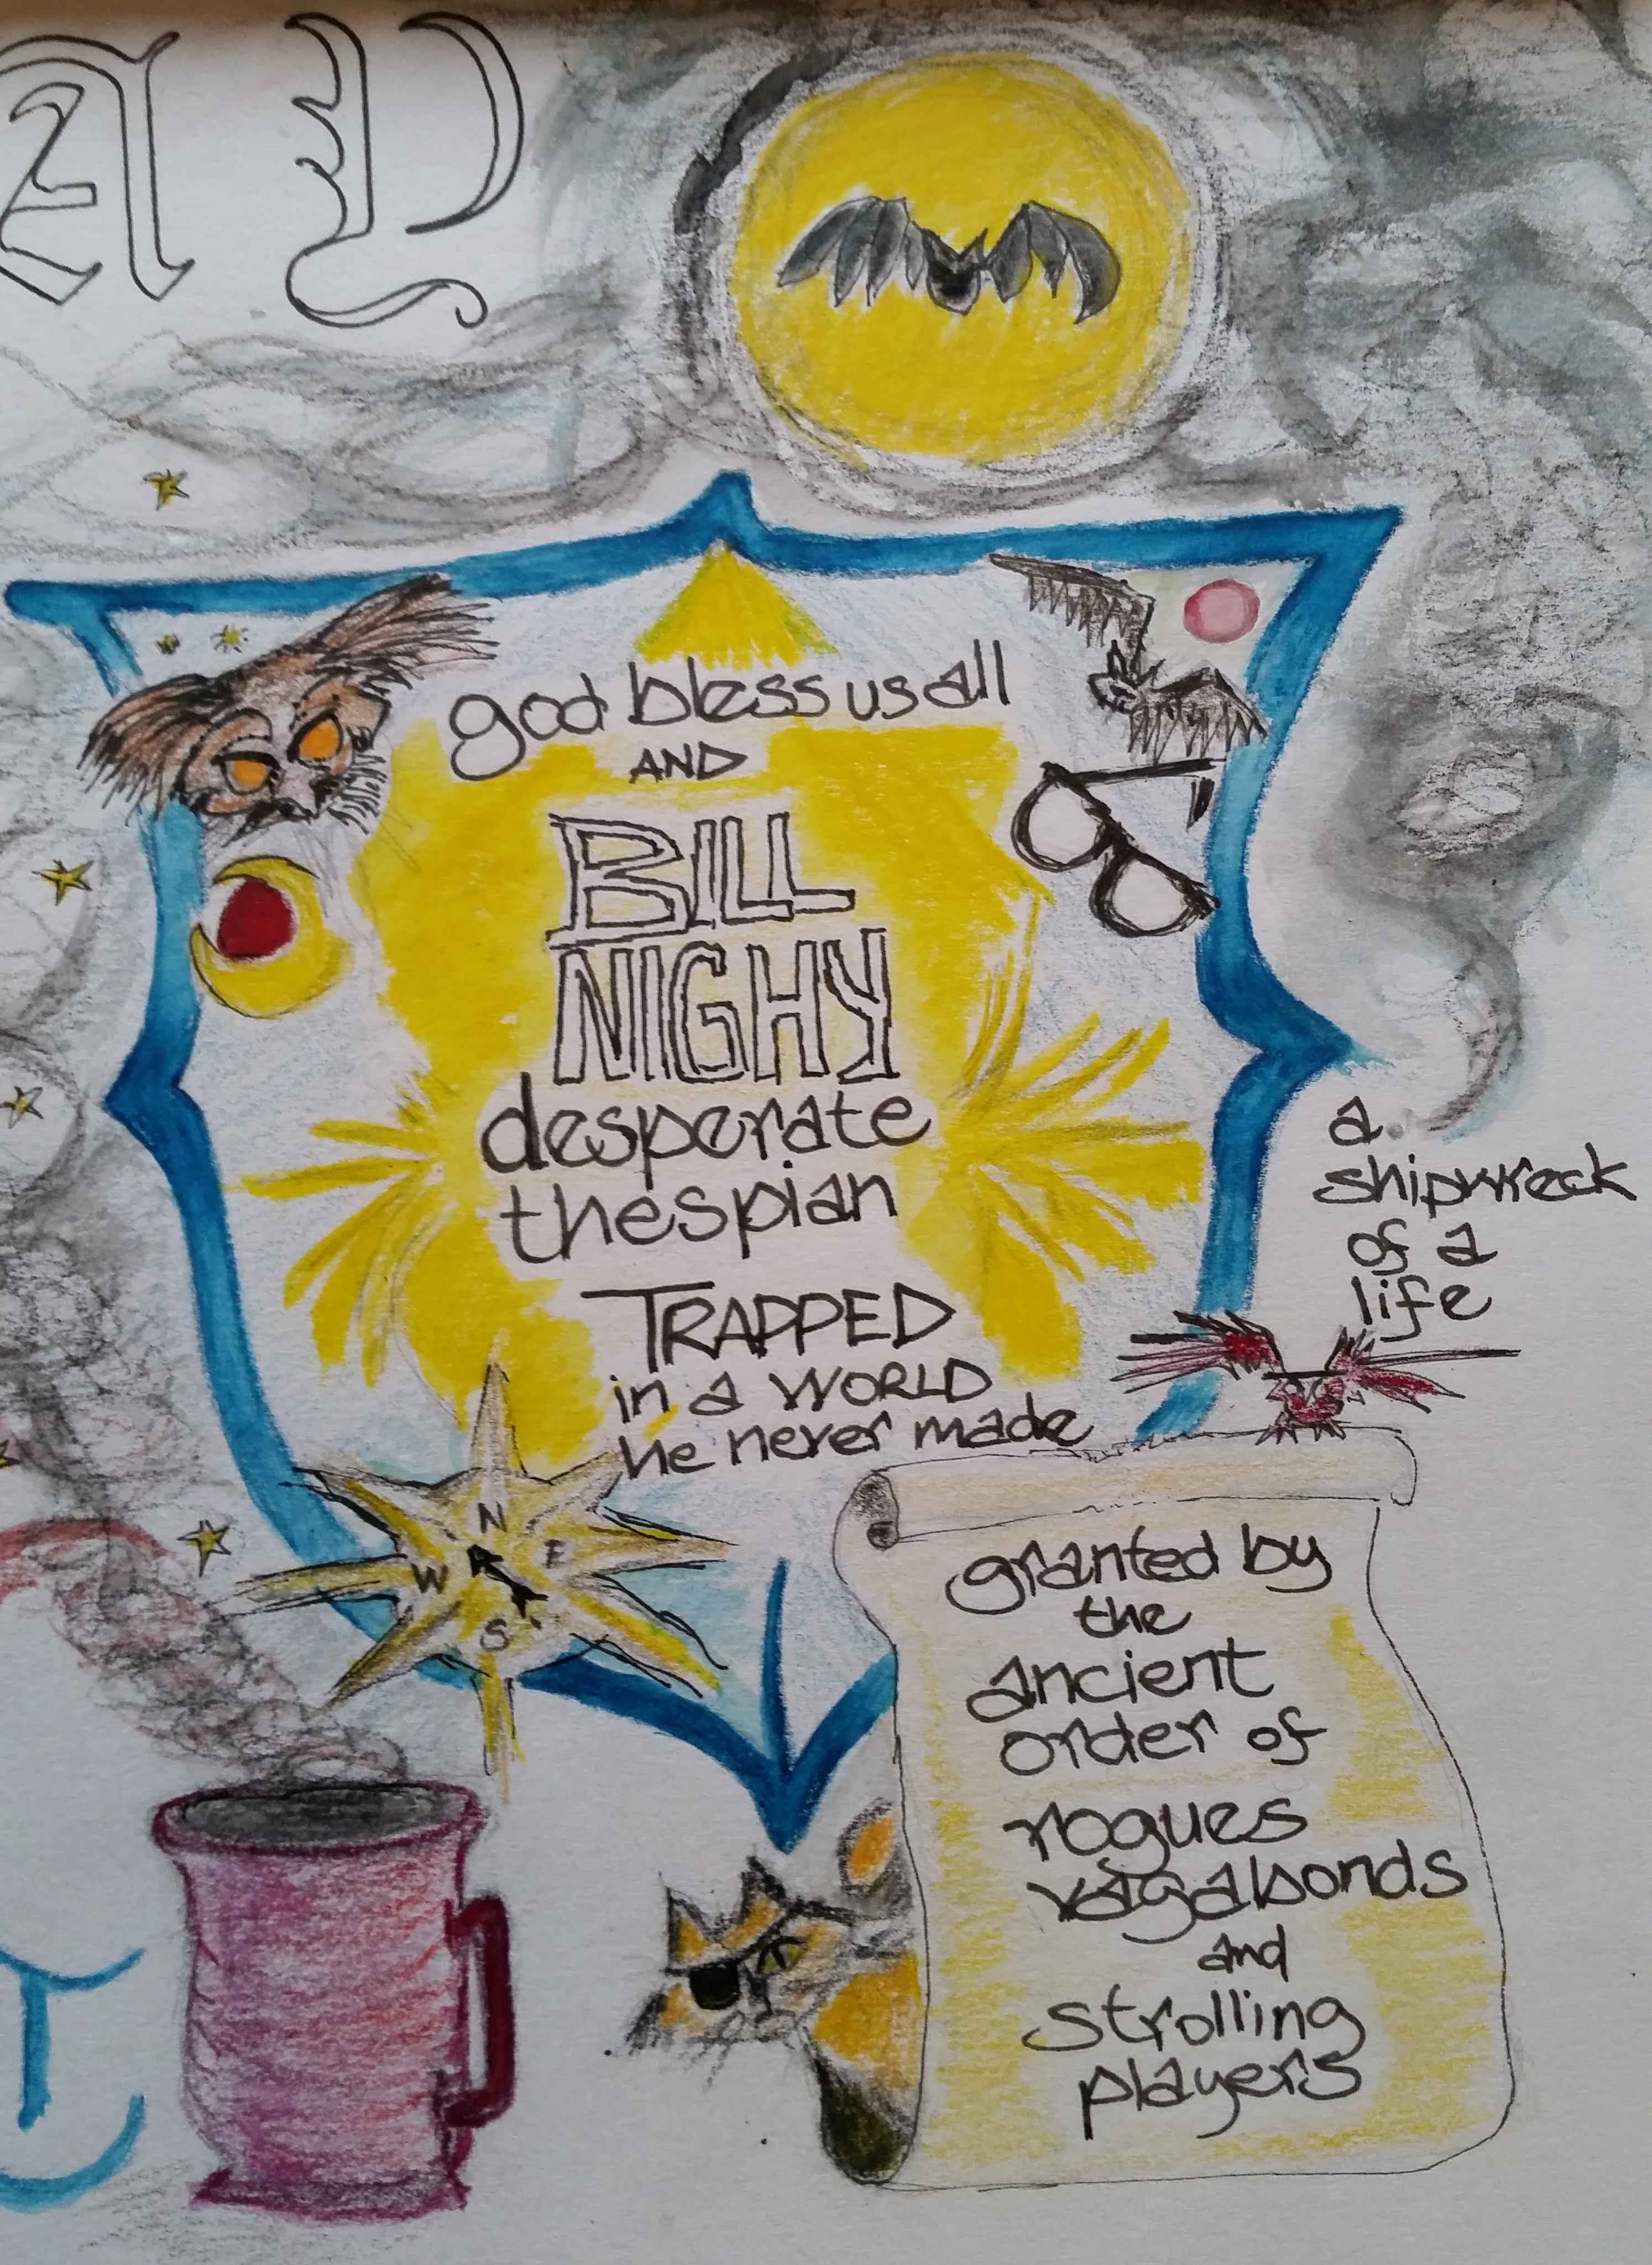 AY
god bless us all
AND
BILL
NIGHY
desperate
thespian
TRAPPED
in a WORLD
he never made
N
W E
S
a
shipwreck
of a
life
granted by
the
ancient
order of
rogues
vagabonds
and
strolling
players